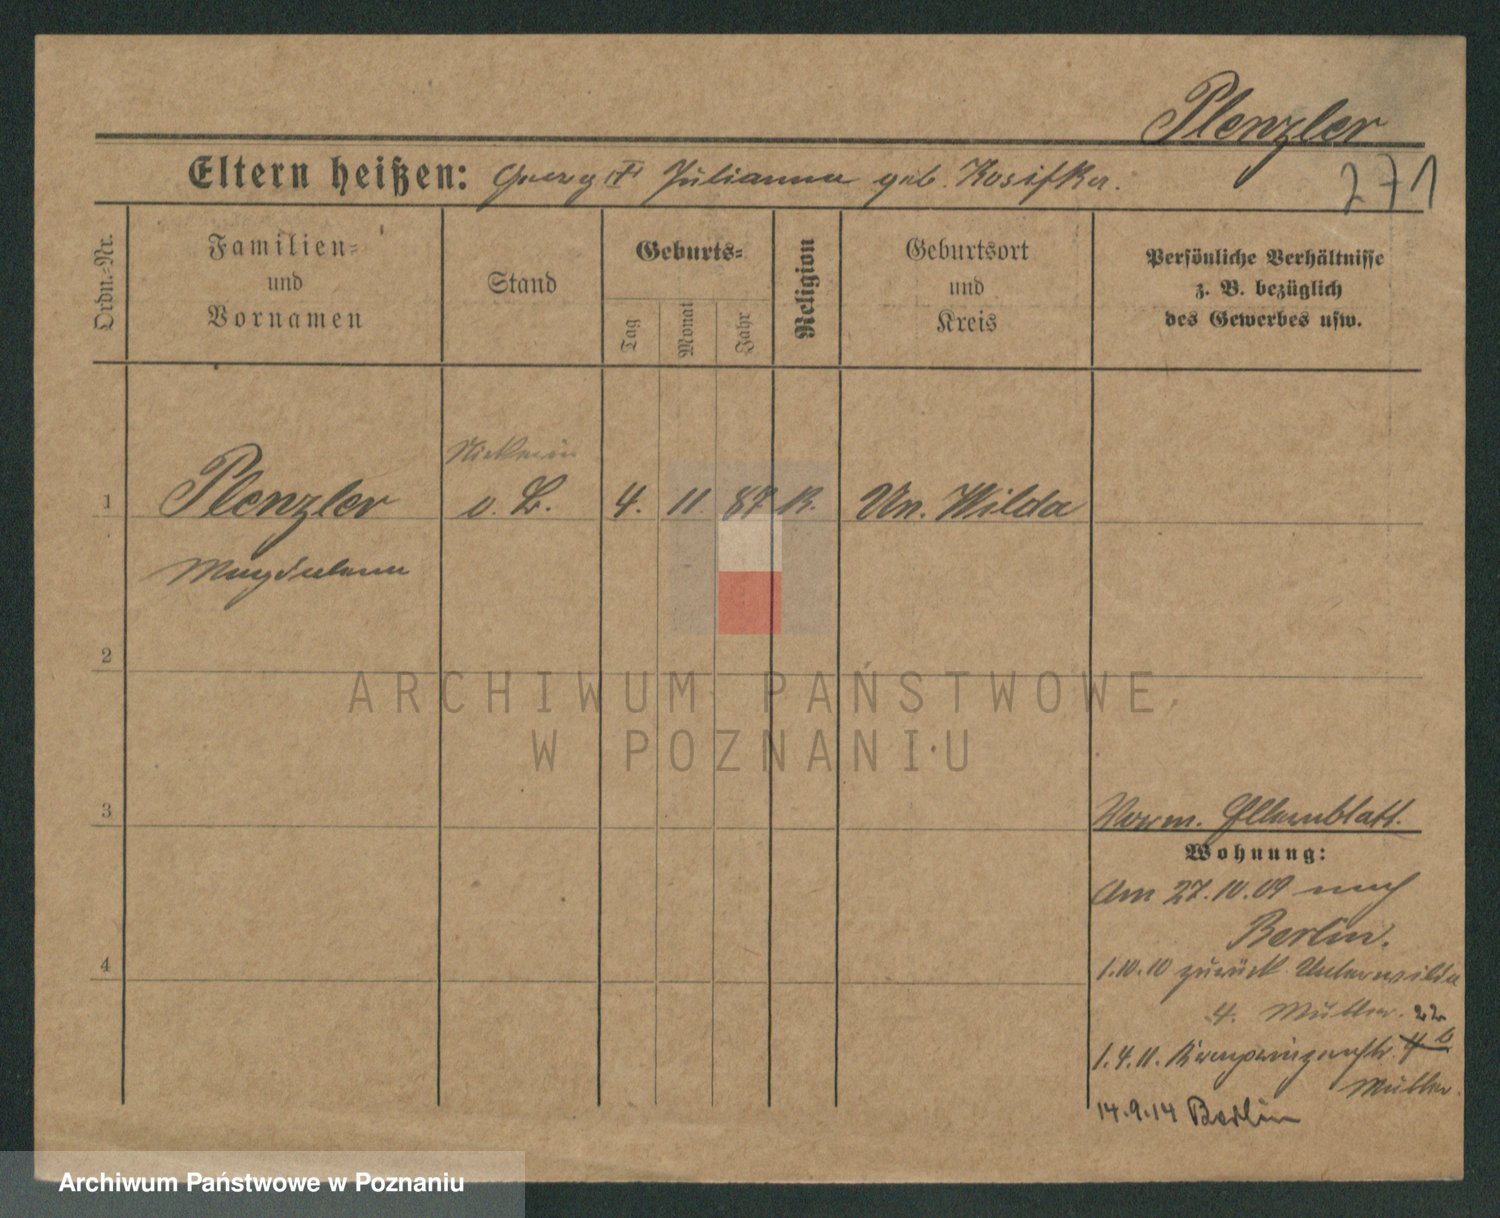 Plenzler
271
Eltern heißen: Georg u. Julianna geb. Kosifka.
Ordn.-Nr.
Familien-
und
Vornamen
Stand
Geburts-
Tag
Monat
Jahr
Religion
Geburtsort
und
Kreis
Persönliche Verhältnisse
z. B. bezüglich
des Gewerbes usw.
1
Plenzler
o. B.
4.
11.
87
K.
Un. Wilda
Magdalena
2
ARCHIWUM PAŃSTWOWE
W POZNANIU
3
Vorm. Elternblatt.
Wohnung:
Am 27.10.09 nach
Berlin.
4
1.10.10 zurück Unterwilda
4. Mutter. 22
1.4.11. Kronprinzenstr. 4 b
Mutter.
14.9.14 Berlin
Archiwum Państwowe w Poznaniu